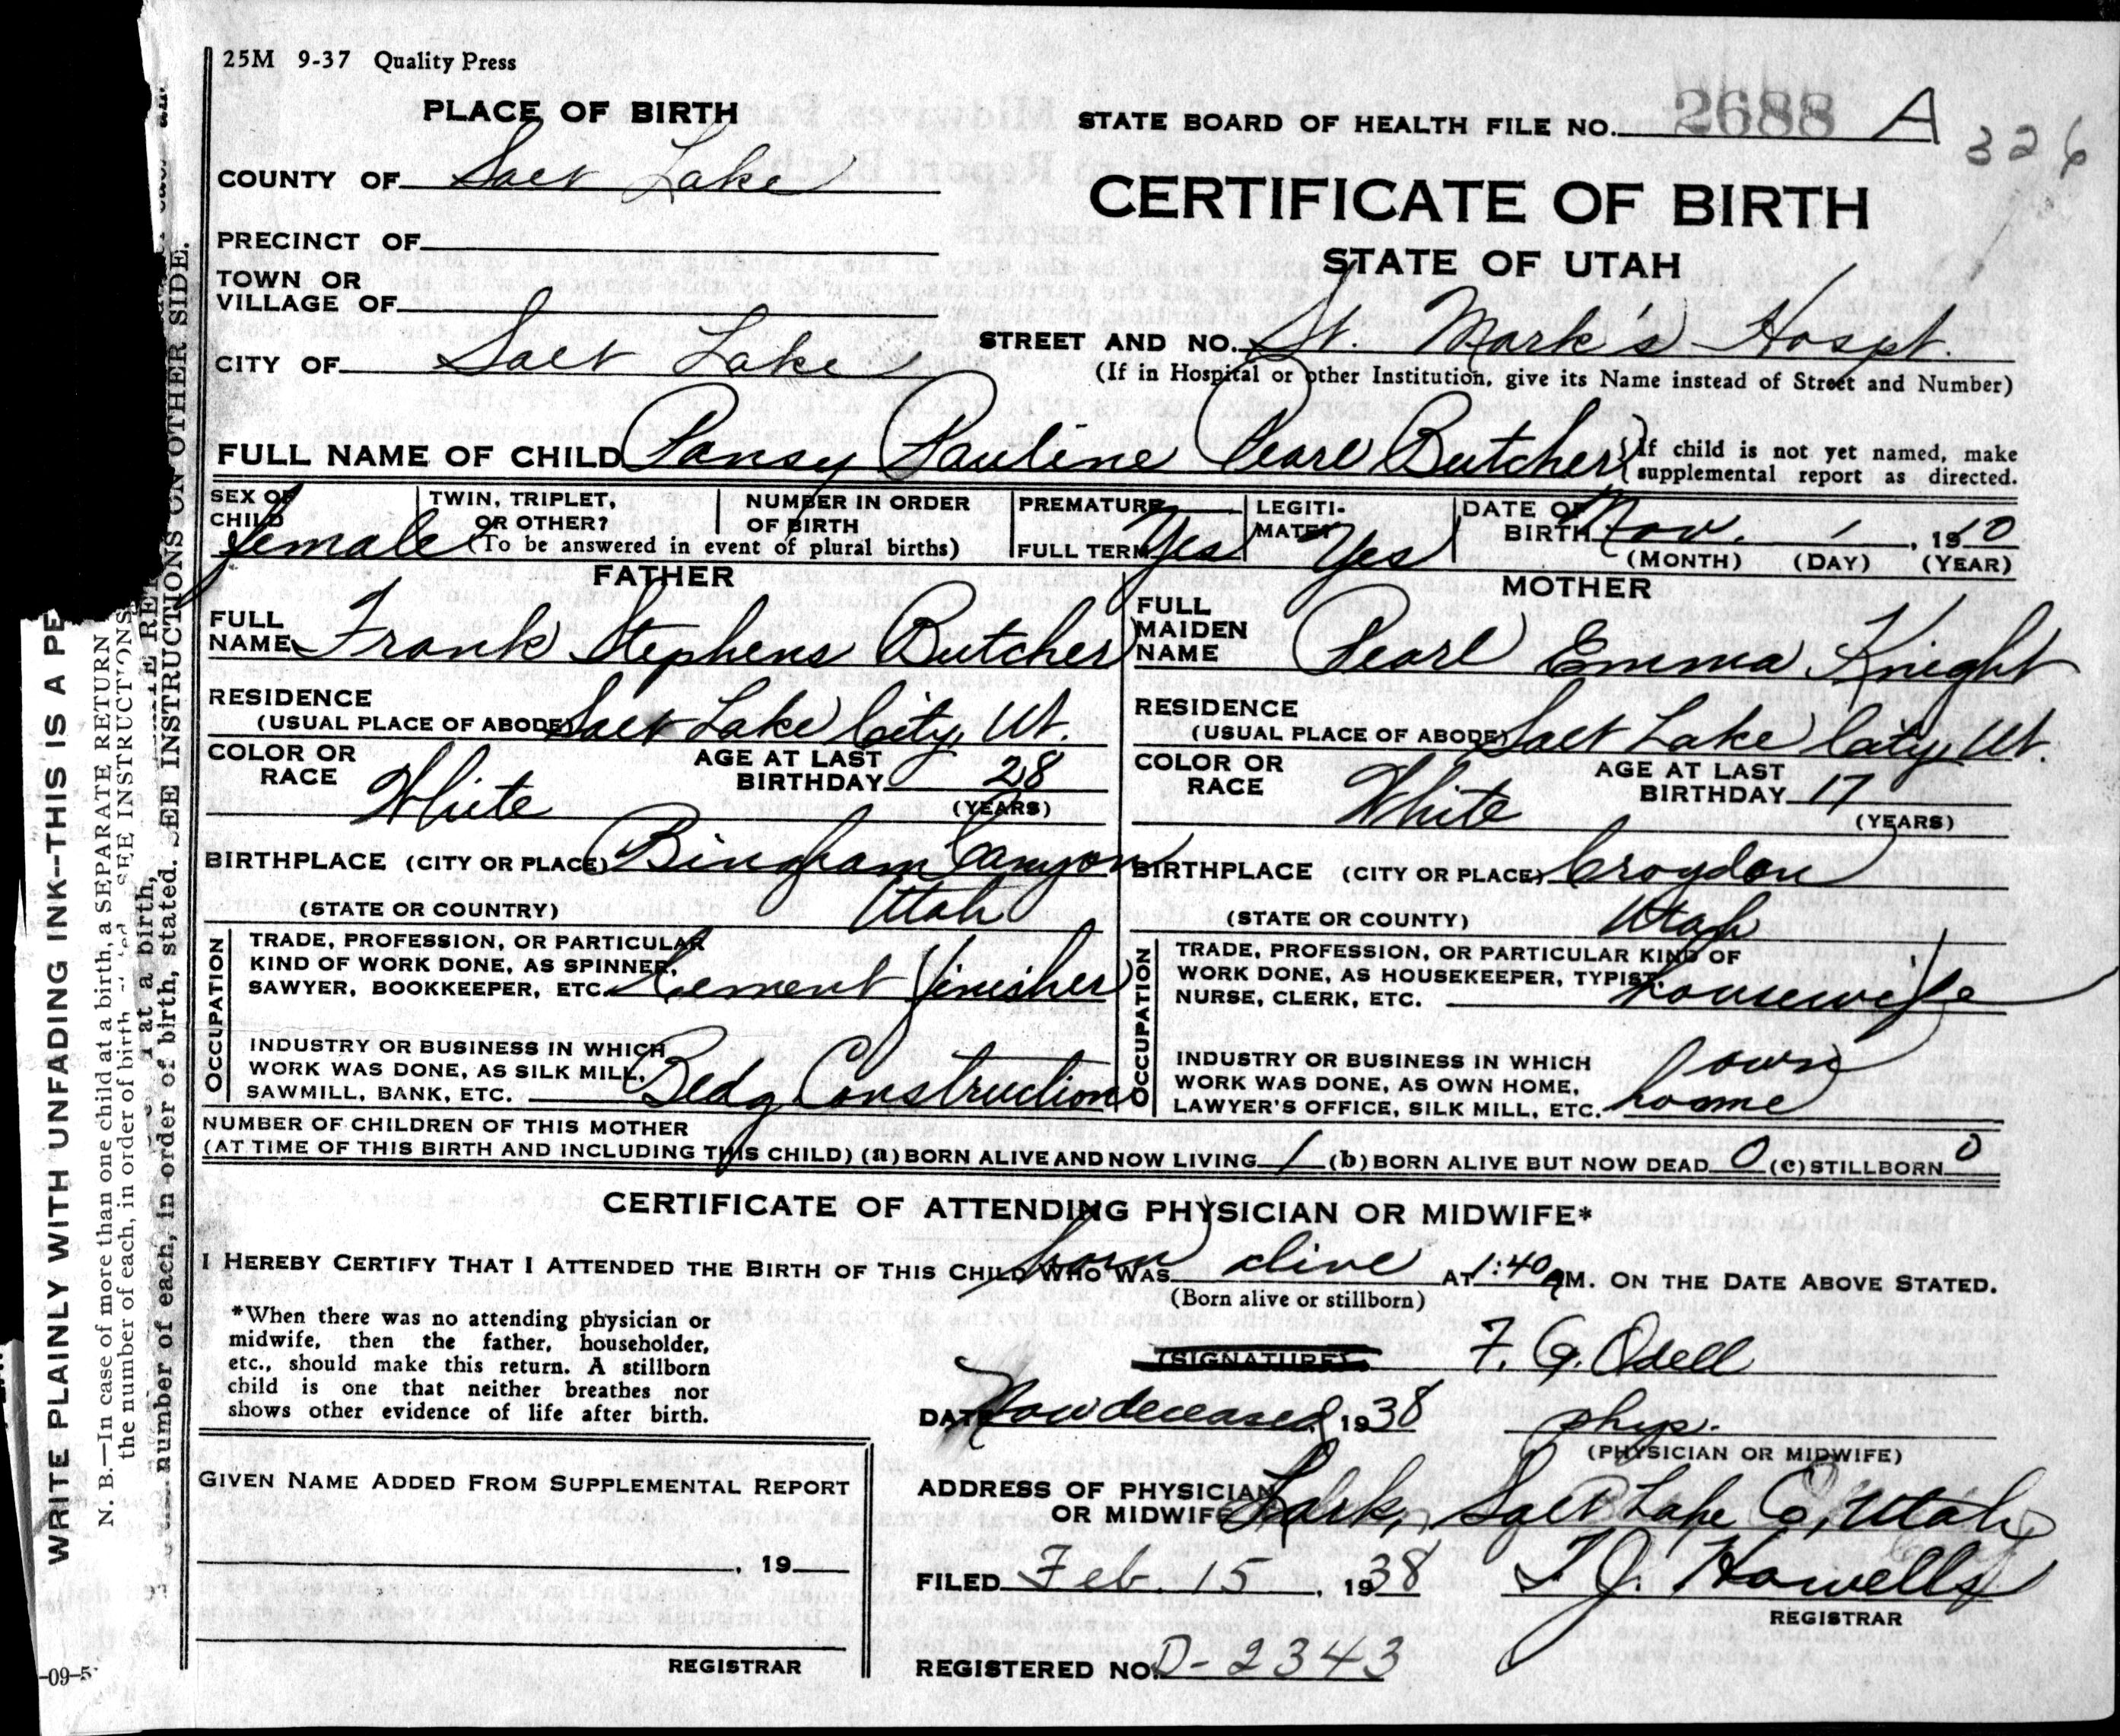 25M 9-37 Quality Press
PLACE OF BIRTH
STATE BOARD OF HEALTH FILE NO. 2688 A
326
COUNTY OF Salt Lake
CERTIFICATE OF BIRTH
PRECINCT OF
STATE OF UTAH
TOWN OR
VILLAGE OF
STREET AND NO. St. Mark's Hospt.
CITY OF Salt Lake
(If in Hospital or other Institution, give its Name instead of Street and Number)
FULL NAME OF CHILD Pansy Pauline Pearl Butcher
If child is not yet named, make
supplemental report as directed.
SEX OF
CHILD female
TWIN, TRIPLET,
OR OTHER?
NUMBER IN ORDER
OF BIRTH
(To be answered in event of plural births)
PREMATURE
FULL TERM Yes
LEGITI-
MATE? Yes
DATE OF
BIRTH Nov. 1, 19
(MONTH) (DAY) (YEAR)
FATHER
FULL
NAME Frank Stephens Butcher
RESIDENCE
(USUAL PLACE OF ABODE) Salt Lake City, Ut.
COLOR OR
RACE White
AGE AT LAST
BIRTHDAY 28
(YEARS)
BIRTHPLACE (CITY OR PLACE) Bingham Canyon
(STATE OR COUNTRY) Utah
OCCUPATION
TRADE, PROFESSION, OR PARTICULAR
KIND OF WORK DONE, AS SPINNER,
SAWYER, BOOKKEEPER, ETC. Cement finisher
INDUSTRY OR BUSINESS IN WHICH
WORK WAS DONE, AS SILK MILL,
SAWMILL, BANK, ETC. Bedg Construction
MOTHER
FULL
MAIDEN
NAME Pearl Emma Knight
RESIDENCE
(USUAL PLACE OF ABODE) Salt Lake City, Ut.
COLOR OR
RACE White
AGE AT LAST
BIRTHDAY 17
(YEARS)
BIRTHPLACE (CITY OR PLACE) Croydon
(STATE OR COUNTY) Utah
OCCUPATION
TRADE, PROFESSION, OR PARTICULAR KIND OF
WORK DONE, AS HOUSEKEEPER, TYPIST,
NURSE, CLERK, ETC. housewife
INDUSTRY OR BUSINESS IN WHICH
WORK WAS DONE, AS OWN HOME,
LAWYER'S OFFICE, SILK MILL, ETC. own home
NUMBER OF CHILDREN OF THIS MOTHER
(AT TIME OF THIS BIRTH AND INCLUDING THIS CHILD) (a) BORN ALIVE AND NOW LIVING 1 (b) BORN ALIVE BUT NOW DEAD 0 (c) STILLBORN 0
CERTIFICATE OF ATTENDING PHYSICIAN OR MIDWIFE*
I HEREBY CERTIFY THAT I ATTENDED THE BIRTH OF THIS CHILD WHO WAS born alive AT 1:40 a M. ON THE DATE ABOVE STATED.
(Born alive or stillborn)
*When there was no attending physician or
midwife, then the father, householder,
etc., should make this return. A stillborn
child is one that neither breathes nor
shows other evidence of life after birth.
(SIGNATURE) F. G. Odell
DATE Now deceased 1938 phys.
(PHYSICIAN OR MIDWIFE)
GIVEN NAME ADDED FROM SUPPLEMENTAL REPORT
, 19
REGISTRAR
ADDRESS OF PHYSICIAN
OR MIDWIFE Lark, Salt Lake Co, Utah
FILED Feb. 15, 1938 T. J. Howells
REGISTRAR
REGISTERED NO. D-2343
WRITE PLAINLY WITH UNFADING INK--THIS IS A PE
N. B.—In case of more than one child at a birth, a SEPARATE RETURN
the number of each, in order of birth SEE INSTRUCTIONS
at a birth,
number of each, in order of birth, stated. SEE INSTRUCTIONS ON OTHER SIDE.
-09-5